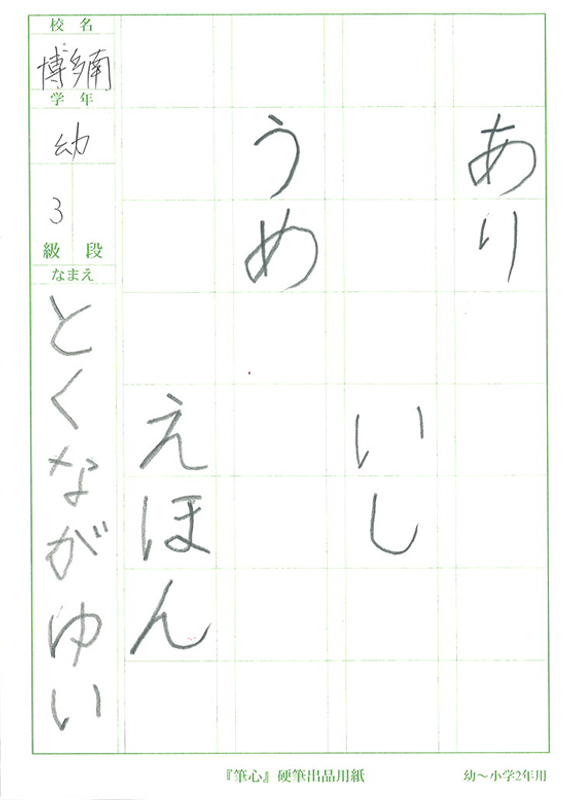 あり
いし
うめ
えほん
校名
博多南
学年
幼
3
級 段
なまえ
とくながゆい
『筆心』硬筆出品用紙
幼〜小学2年用